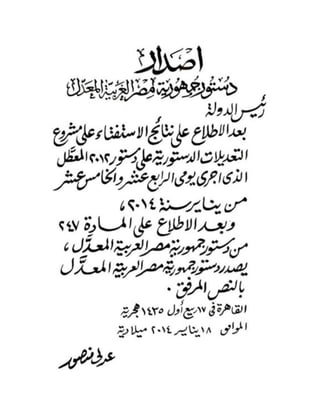 اصدار
دستور جمهورية مصر العربية المعدل
رئيس الدولة
بعد الاطلاع على نتائج الاستفتاء على مشروع
التعديلات الدستورية على دستور ٢٠١٢ المعطل
الذى اجرى يومى الرابع عشر والخامس عشر
من يناير سنة ٢٠١٤،
وبعد الاطلاع على المادة ٢٤٧
من دستور جمهورية مصر العربية المعدل،
يصدر دستور جمهورية مصر العربية المعدل
بالنص المرفق.
القاهرة فى ١٧ ربيع أول ١٤٣٥ هجرية
الموافق ١٨ يناير ٢٠١٤ ميلادية
عدلى منصور